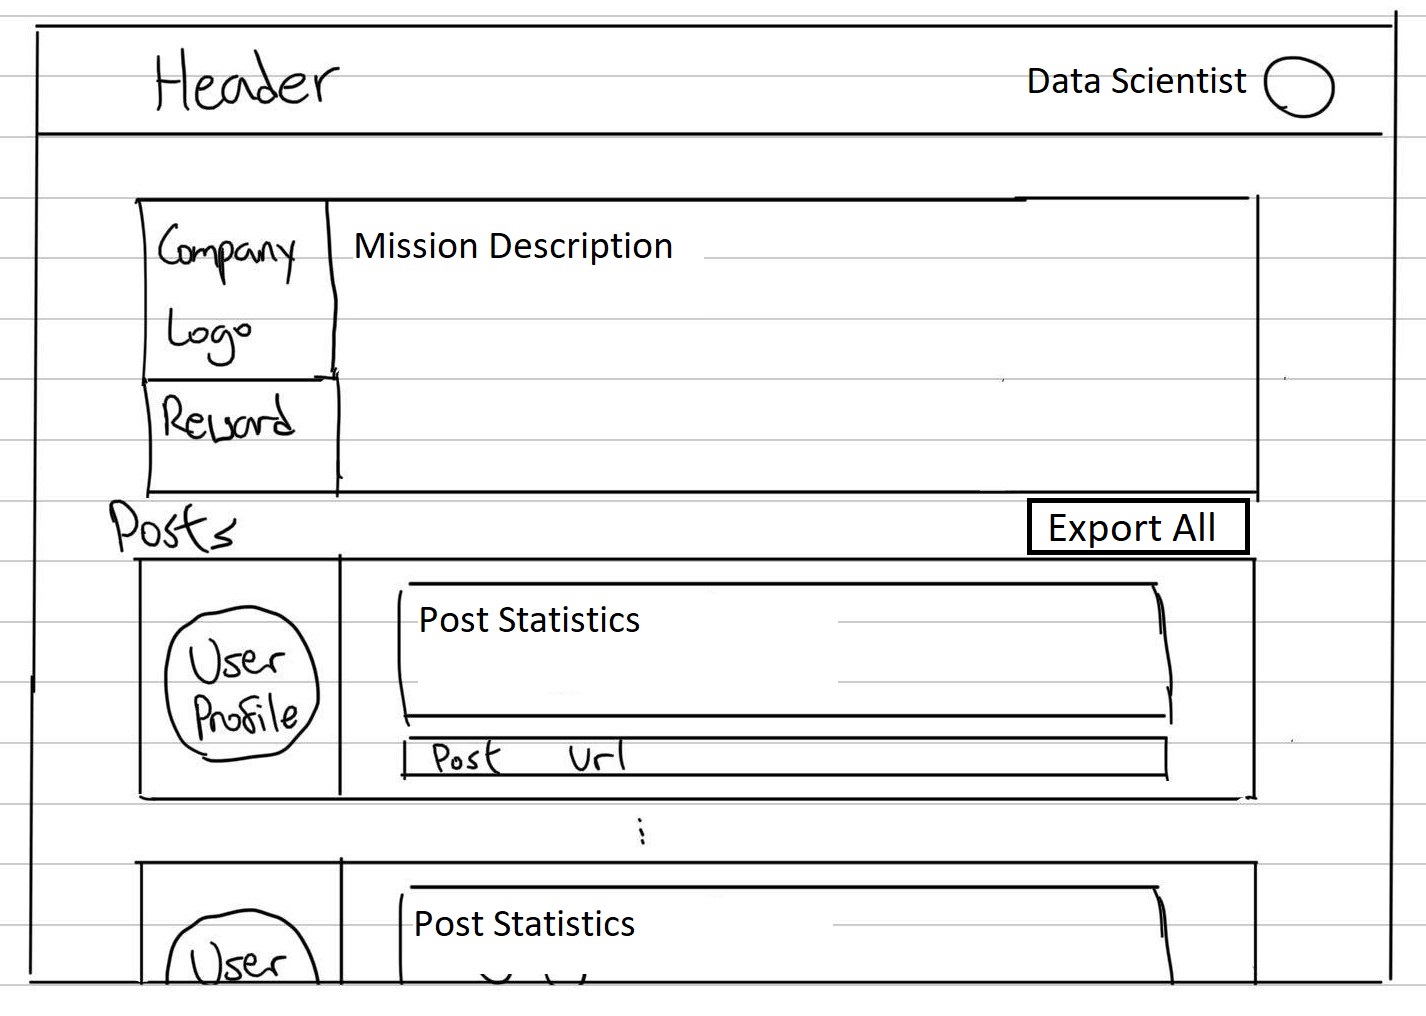 Header
Data Scientist
Company
Logo
Mission Description
Reward
Posts
Export All
User
Profile
Post Statistics
Post Url
User
Post Statistics